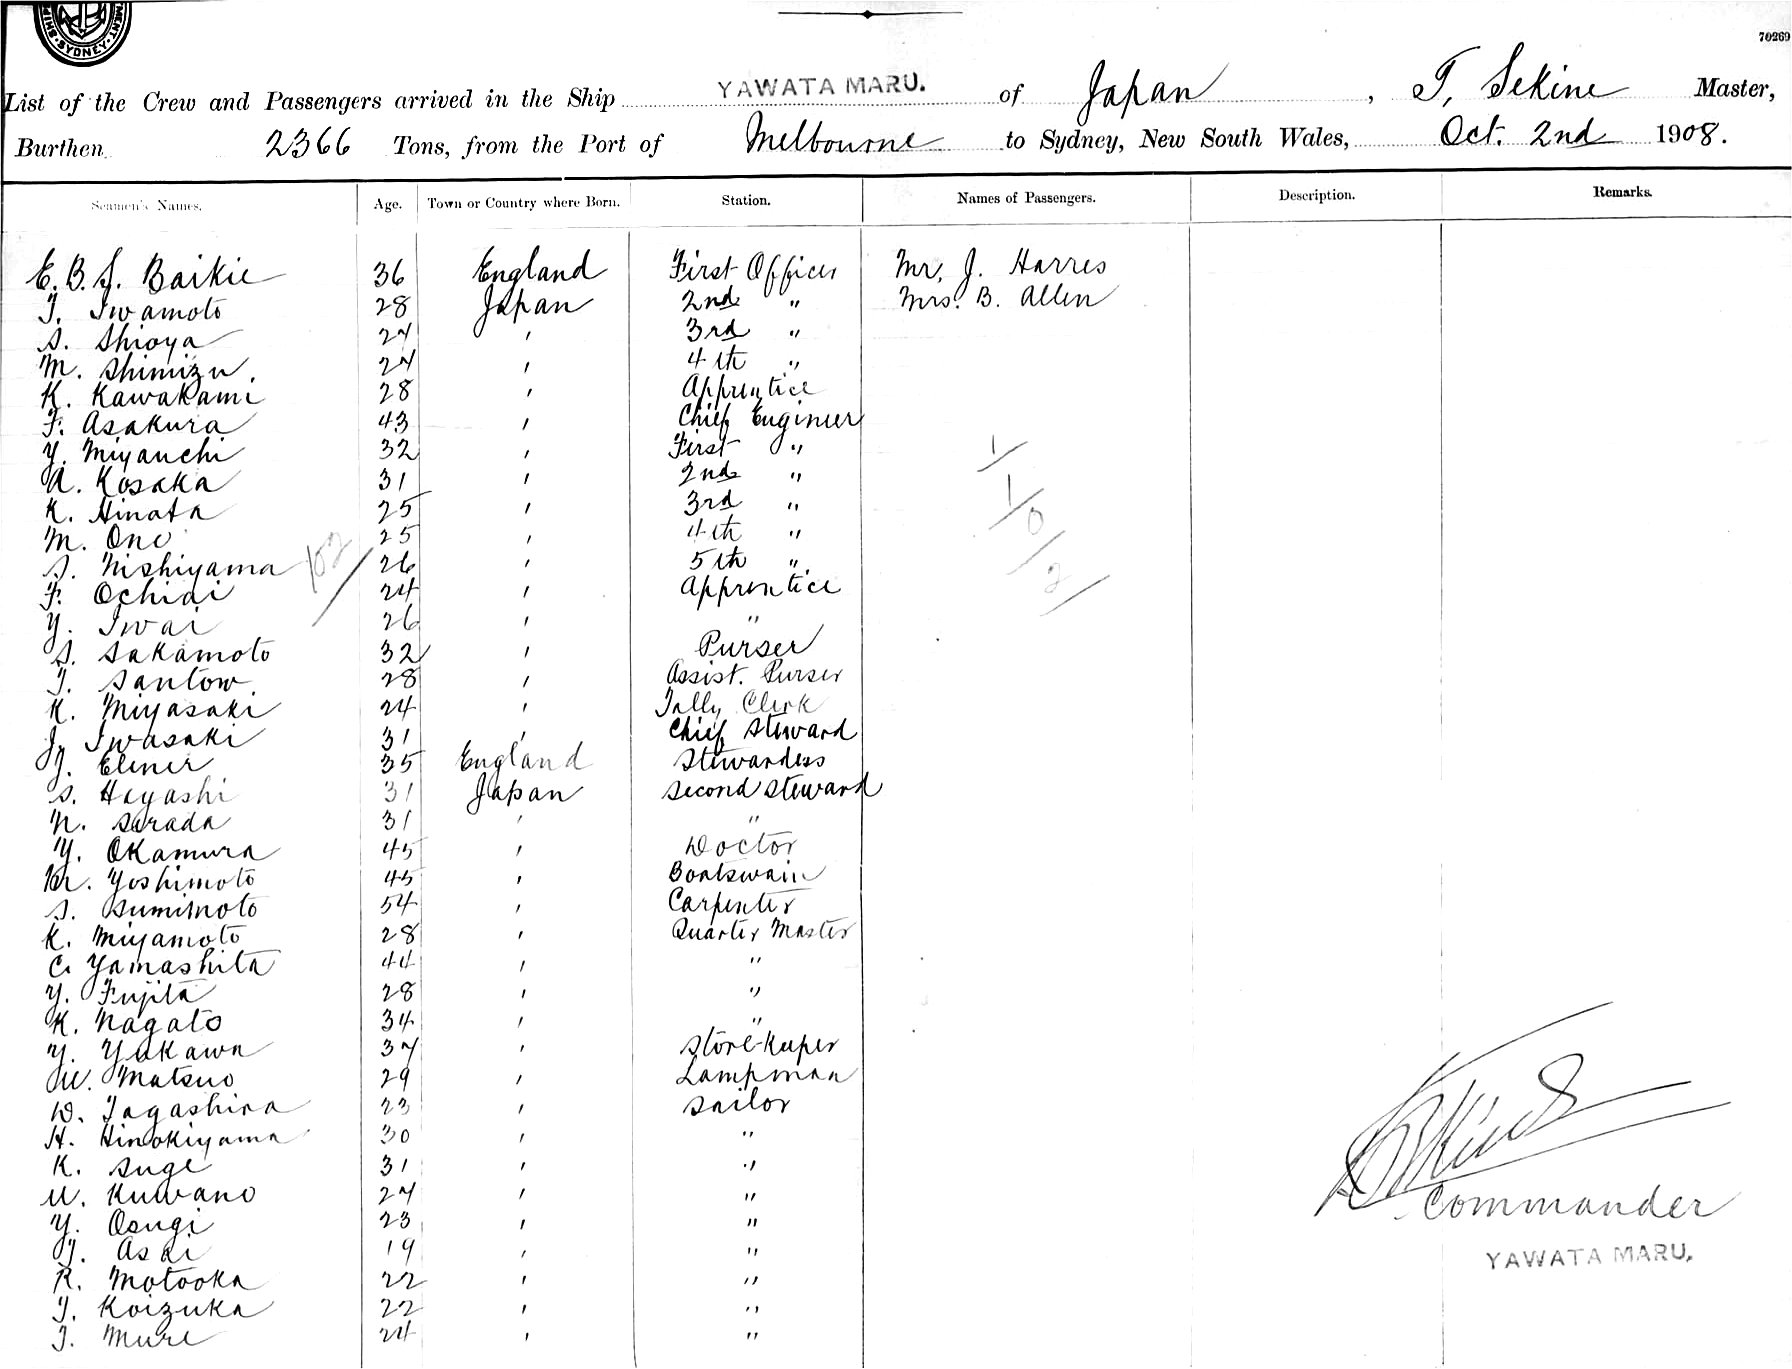 SYDNEY
70269
List of the Crew and Passengers arrived in the Ship YAWATA MARU. of Japan, T. Sekine Master,
Burthen 2366 Tons, from the Port of Melbourne to Sydney, New South Wales, Oct. 2nd 1908.
Seamen's Names. Age. Town or Country where Born. Station. Names of Passengers. Description. Remarks.
E. B. S. Baikie 36 England First Officer Mr. J. Harres
T. Iwamoto 28 Japan 2nd " Mrs. B. Allen
S. Shioya 27 ' 3rd "
M. Shimizu. 27 ' 4th "
K. Kawakami 28 ' Apprentice
F. Asakura 43 ' Chief Engineer
Y. Miyauchi 32 ' First "
A. Kosaka 31 ' 2nd "
K. Hinata 25 ' 3rd "
M. Ono 25 ' 4th "
S. Nishiyama 26 ' 5th "
F. Ochiai 24 ' Apprentice
Y. Iwai 26 ' "
S. Sakamoto 32 ' Purser
T. Santow. 28 ' Assist. Purser
K. Miyasaki 24 ' Tally Clerk
J. Iwasaki 31 ' Chief Steward
J. Elmer 35 England Stewardess
S. Hayashi 31 Japan Second Steward
N. Sarada 31 ' "
Y. Okamura 45 ' Doctor
Yoshimoto 45 ' Boatswain
S. Sumimoto 54 ' Carpenter
K. Miyamoto 28 ' Quarter Master
C. Yamashita 44 ' "
Y. Fujita 28 ' "
K. Nagato 34 ' "
Y. Yukawa 37 ' Store-Keeper
U. Matsuo 29 ' Lampman
D. Tagashira 23 ' Sailor
H. Hinokiyama 30 ' "
K. Suge 31 ' "
U. Kuwano 27 ' "
Y. Osugi 23 ' "
T. Asai 19 ' "
R. Motooka 22 ' "
T. Koizuka 22 ' "
T. Mure 24 ' "
102
1/1/0/2/
Commander
YAWATA MARU.